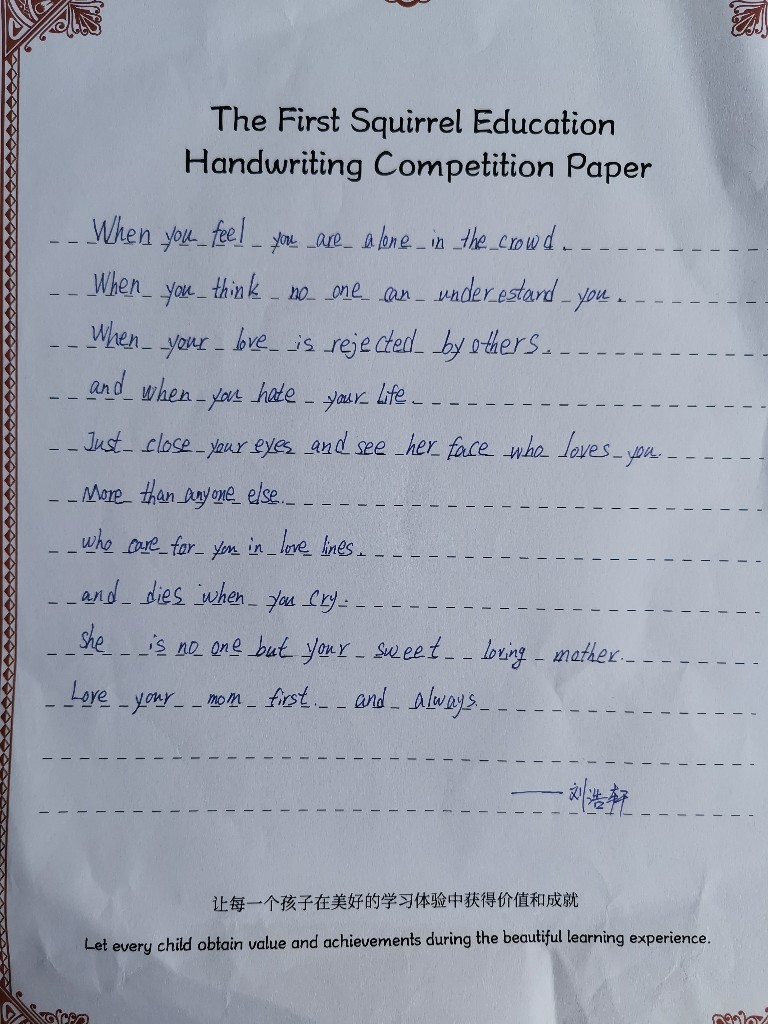 The First Squirrel Education
Handwriting Competition Paper
When you feel you are alone in the crowd.
When you think no one can underestand you.
When your love is rejected by others.
and when you hate your life.
Just close your eyes and see her face who loves you.
More than anyone else.
who care for you in love lines.
and dies when you cry.
she is no one but your sweet loving mother.
Love your mom first. and always.
——刘浩轩
让每一个孩子在美好的学习体验中获得价值和成就
Let every child obtain value and achievements during the beautiful learning experience.